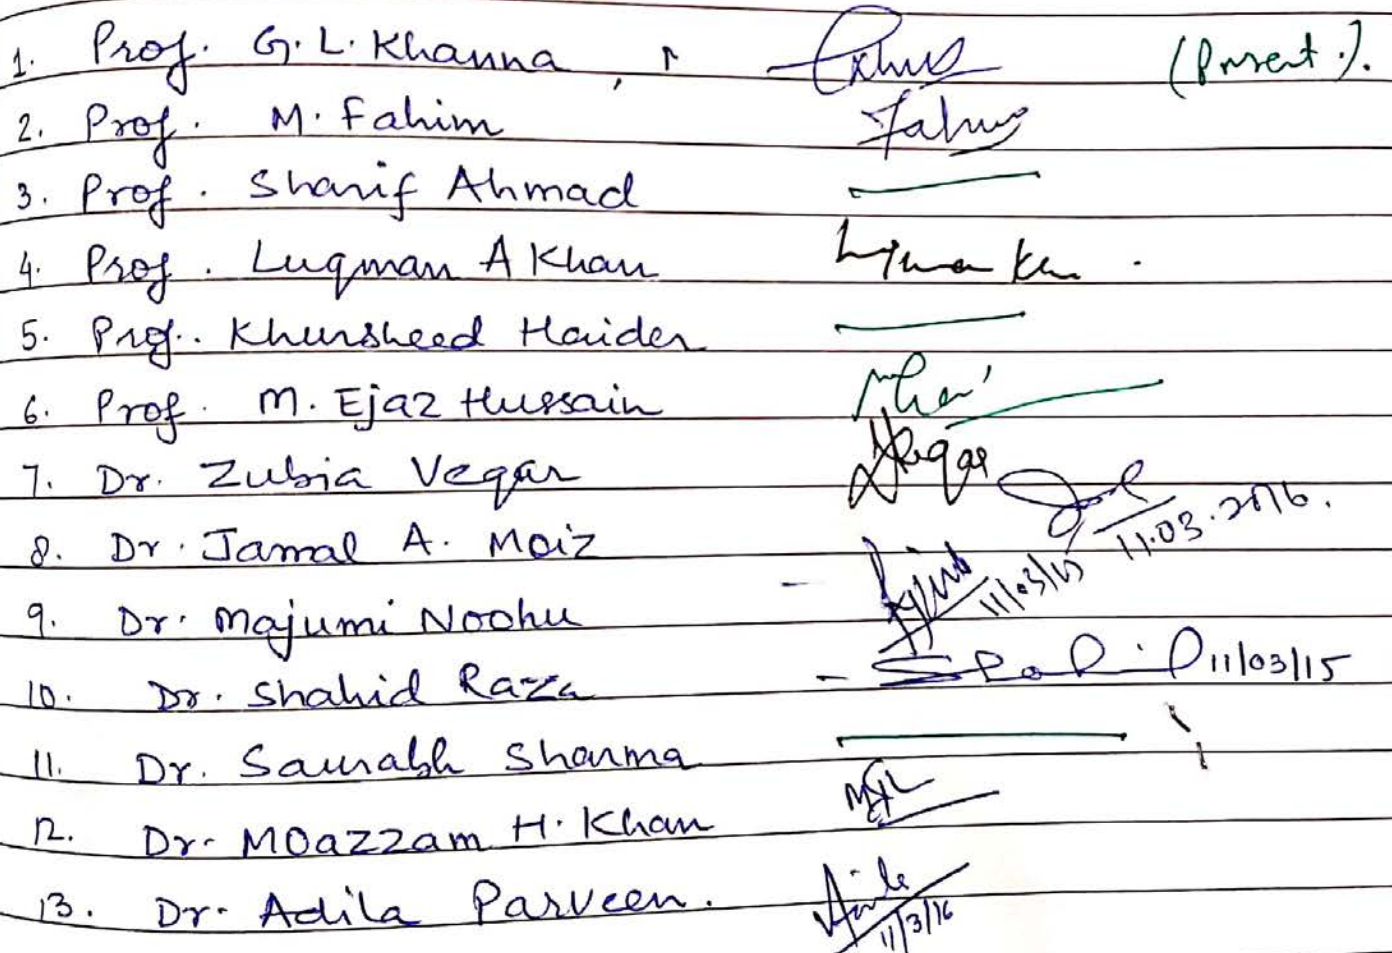 1. Prof. G. L. Khanna, (Present.).
2. Prof. M. Fahim Fahim
3. Prof. Sharif Ahmad
4. Prof. Luqman A Khan
5. Prof. Khursheed Haider
6. Prof. M. Ejaz Hussain
7. Dr. Zubia Veqar Veqar
8. Dr. Jamal A. Moiz 11.03.2016.
9. Dr. Majumi Noohu 11/03/15
10. Dr. Shahid Raza Shahid 11/03/15
11. Dr. Saurabh Sharma
12. Dr. MOazzam H. Khan
13. Dr. Adila Parveen. 11/3/16